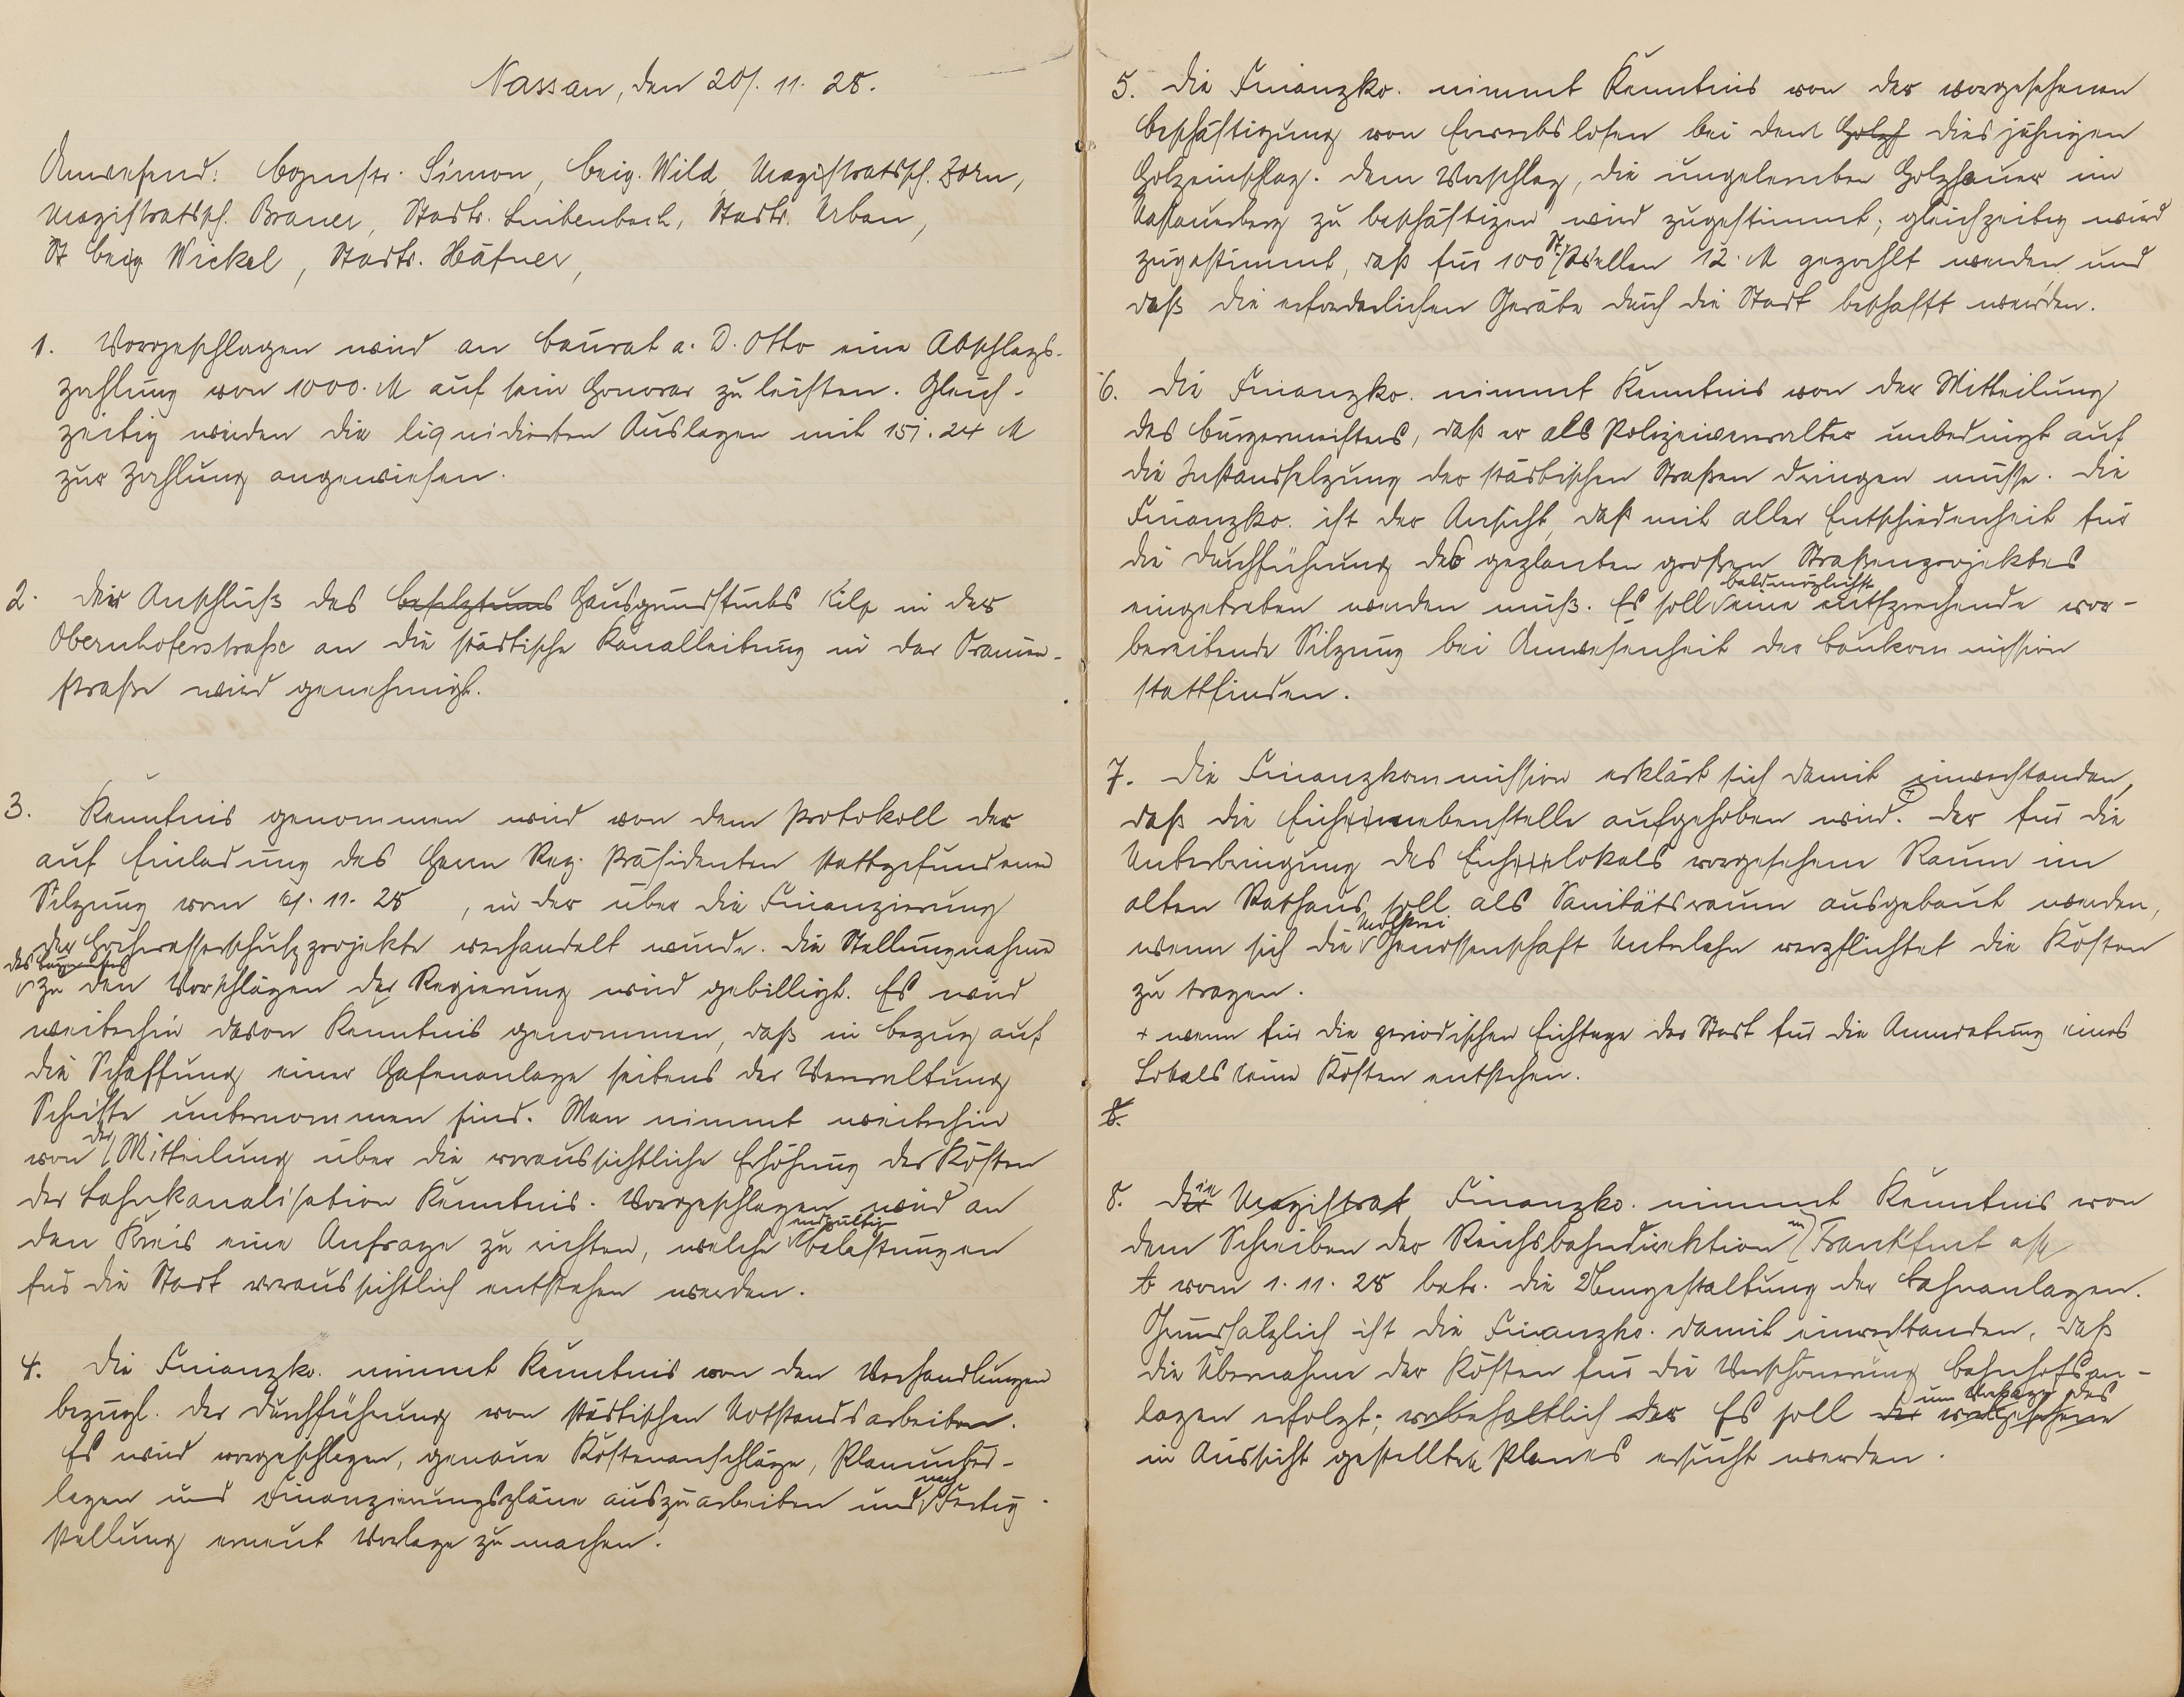 Nassau, den 20. 11. 28.
Anwesend: Bgmstr. Simon, Beig. Wild, Magistratssch. Zorn,
Magistratssch. Brauer, Stadtr. Leikenbach, Stadtr. Urban,
St Beig Wickel, Stadtr. Häfner,
1. Vorgeschlagen wird an Baurat a. D. Otto eine Abschlags-
zahlung von 1000. M auf sein Honorar zu leisten. Gleich-
zeitig werden die liquidierten Auslagen mit 151.24 M
zur Zahlung angewiesen.
2. Der Anschluß des Hausgrundstücks Kilp in der
Obernhoferstraße an die städtische Kanalleitung in der Oranien-
straße wird genehmigt.
3. Kenntnis genommen wird von dem Protokoll der
auf Einladung des Herrn Reg. Präsidenten stattgefundenen
Sitzung vom 6. 11. 28, in der über die Finanzierung
der Hochwasserschutzprojekte verhandelt wurde. Die Stellungnahme
des Bürgermstrs
zu den Vorschlägen der Regierung wird gebilligt. Es wird
weiterhin davon Kenntnis genommen, daß in bezug auf
die Schaffung einer Hafenanlage seitens der Verwaltung
Schritte unternommen sind. Man nimmt weiterhin
von der Mitteilung über die voraussichtliche Erhöhung der Kosten
der Lahnkanalisation Kenntnis. Vorgeschlagen wird an
den Kreis eine Anfrage zu richten, welche endgültig Belastungen
für die Stadt voraussichtlich entstehen werden.
4. Die Finanzko. nimmt Kenntnis von den Verhandlungen
bezügl. der Durchführung von städtischen Notstandsarbeiten.
Es wird vorgeschlagen, genaue Kostenanschläge, Planunter-
lagen und Finanzierungspläne auszuarbeiten und nach Fertig-
stellung erneut Vorlage zu machen.
5. Die Finanzko. nimmt Kenntnis von der vorgesehenen
Beschäftigung von Erwerbslosen bei dem Holz diesjährigen
Holzeinschlag. Dem Vorschlag, die ungelernten Holzhauer im
Nassauerberg zu beschäftigen wird zugestimmt; gleichzeitig wird
zugestimmt, daß für 100 St. Wellen 12. M gezahlt werden und
daß die erforderlichen Geräte durch die Stadt beschafft werden.
6. Die Finanzko. nimmt Kenntnis von der Mitteilung
des Bürgermeisters, daß er als Polizeiverwalter unbedingt auf
die Instandsetzung der städtischen Straßen dringen müsse. Die
Finanzko. ist der Ansicht, daß mit aller Entschiedenheit für
die Durchführung des geplanten großen Straßenprojektes
eingetreten werden muß. Es soll baldmöglichst eine entsprechende vor-
bereitende Sitzung bei Anwesenheit der Baukommission
stattfinden.
7. Die Finanzkommission erklärt sich damit einverstanden,
daß die Eichnebenstelle aufgehoben wird. + Der für die
Unterbringung des Eichlokals vorgesehene Raum im
alten Rathaus soll als Sanitätsraum ausgebaut werden,
wenn sich die Molkerei Genossenschaft Unterlahn verpflichtet die Kosten
zu tragen.
+ wenn für die periodischen Eichtage der Stadt für die Anmietung eines
Lokals keine Kosten entstehen.
8.
8. Die Magistrat Finanzko. nimmt Kenntnis von
dem Schreiben der Reichsbahndirektion in Frankfurt a/M
b vom 1. 11. 28 betr. die Umgestaltung der Bahnanlagen.
Grundsätzlich ist die Finanzko. damit einverstanden, daß
die Übernahme der Kosten für die Verschönerung Bahnhofsan-
lagen erfolgt; vorbehaltlich der Es soll der um Vorlage des vorgesehene
in Aussicht gestellten Planes ersucht werden.